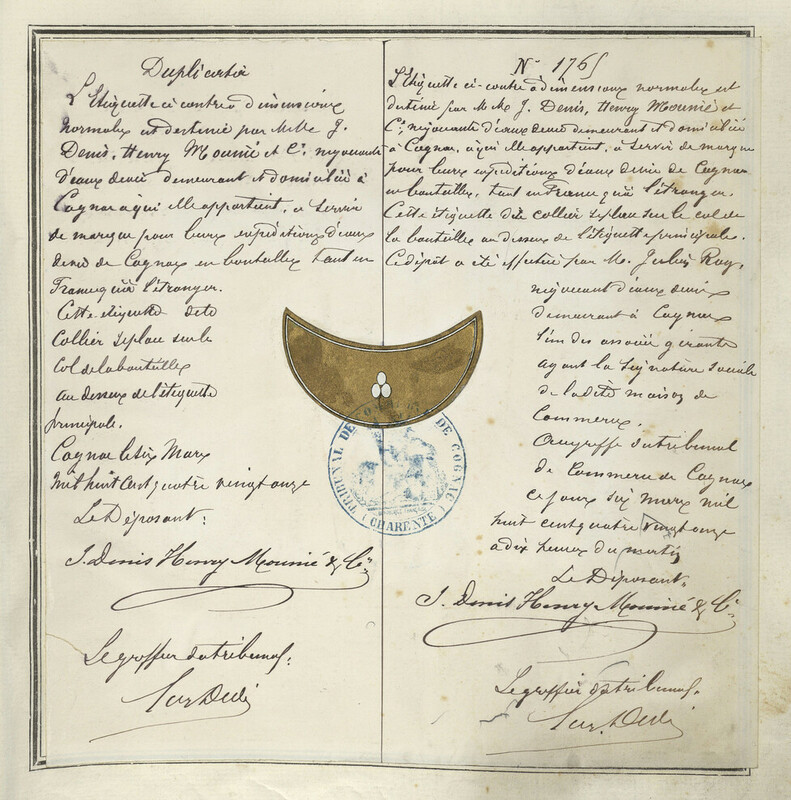 Duplicata
L'Etiquette ci-contre à dimensions
normales est destinée par MMrs J.
Denis, Henry Mounié et Cie, négociants
d'eaux devie demeurant et domiciliés à
Cognac a qui elle appartient, à servir
de marque pour leurs expéditions d'eaux
devie de Cognac en bouteilles tant en
France qu'à l'étranger.
Cette etiquette dite
Collier se place sur le
Col de la bouteilles
au dessus de l'étiquette
principale.
Cognac le six Mars
mil huit cent quatre vingt onze
Le Déposant:
J. Denis Henry Mounié & Cie
Le greffier du tribunal:
No 1765
L'Etiquette ci-contre à dimensions normales est
destinée par MM J. Denis, Henry Mounié et
Cie, négociants d'eaux devie demeurant et domiciliés
à Cognac, à qui elle appartient, à servir de marque
pour leurs expéditions d'eaux devie de Cognac
en bouteilles, tant en France qu'à l'étranger.
Cette etiquette dite collier se place sur le col de
la bouteilles au dessus de l'étiquette principale.
Ce dépôt a été effectué par M. Jules Roy,
négociant d'eaux devie
demeurant à Cognac
l'un des associés gérants
ayant la signature sociale
de la dite maison de
Commerce.
Au greffe du tribunal
de Commerce de Cognac
ce jour six mars mil
huit cent quatre vingt onze
à dix heures du matin
Le Déposant.
J. Denis Henry Mounié & Cie
Le greffier du tribunal.
TRIBUNAL DE COMMERCE DE COGNAC
(CHARENTE)